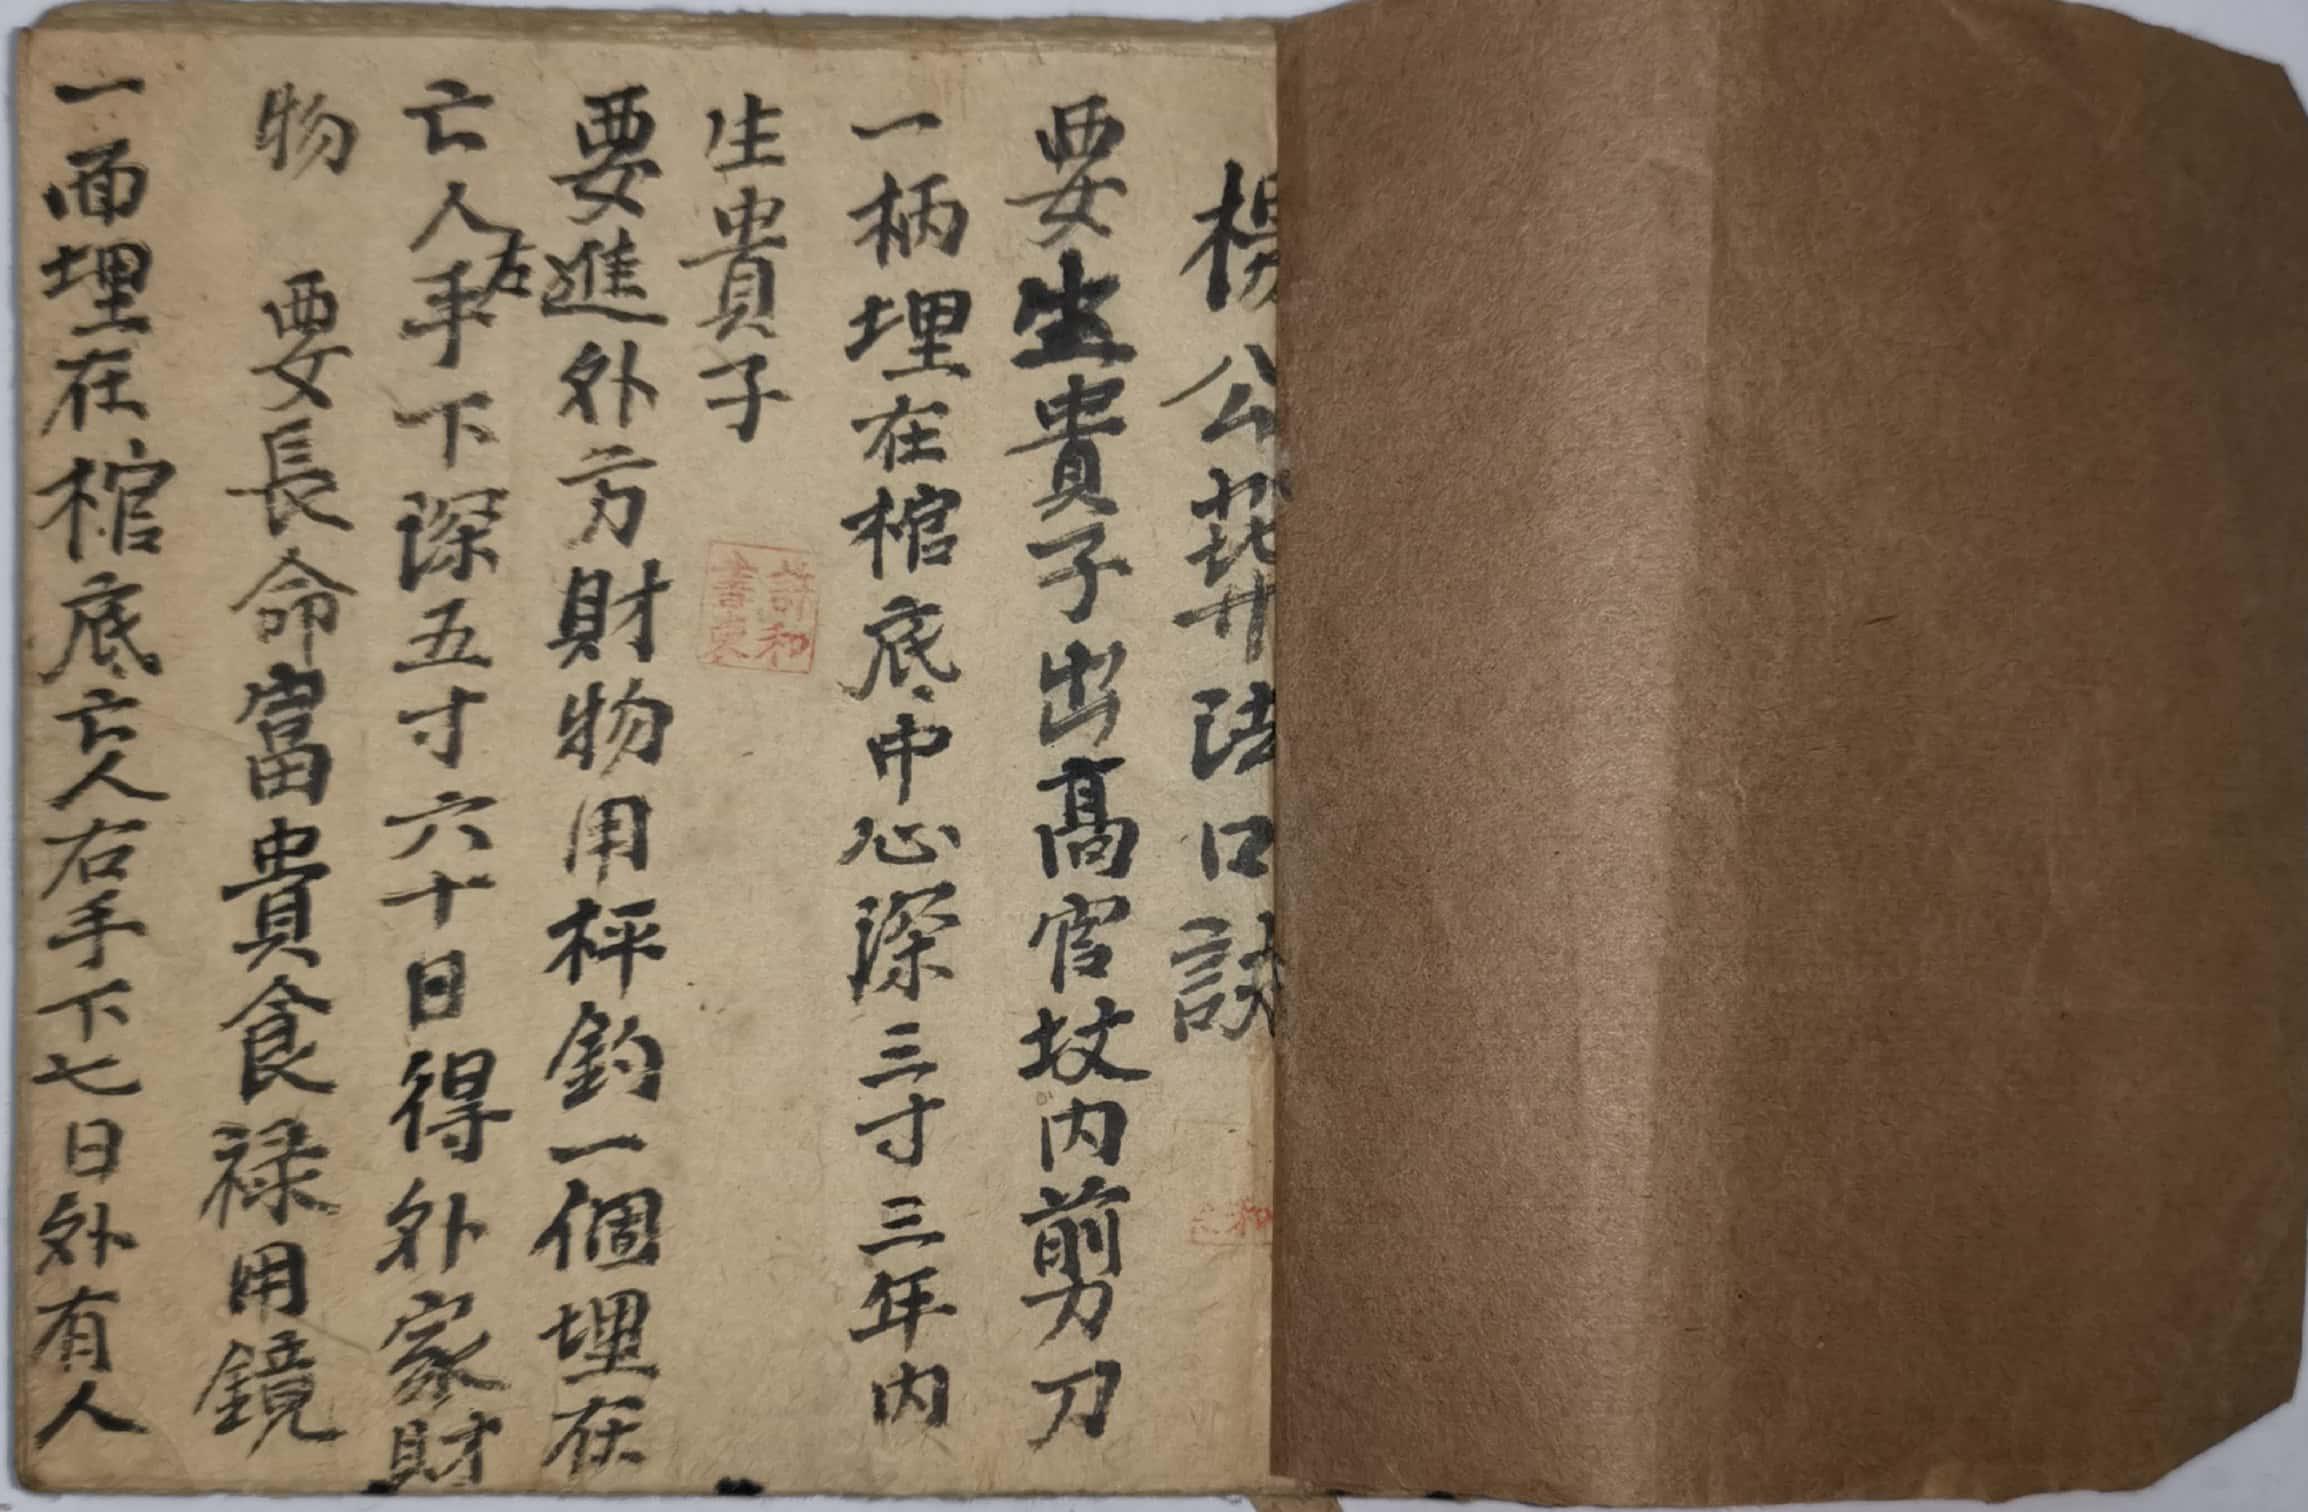 楊公葬法口訣
要生貴子出高官坟内剪刀
一柄埋在棺底中心深三寸三年内
生貴子
許和
書
要進外方財物用枰鈞一個埋在
亡人左手下深五寸六十日得外家財
物 要長命富貴食禄用鏡
一面埋在棺底亡人右手下七日外有人
和